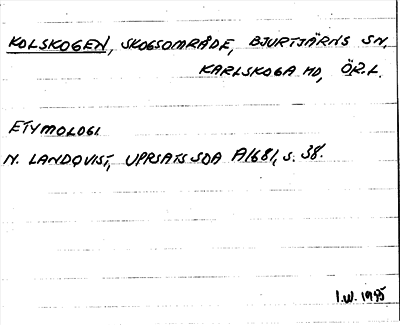 KOLSKOGEN, SKOGSOMRÅDE, BJURTJÄRNS SN,
KARLSKOGA HD, ÖR.L.
ETYMOLOGI
N. LANDQVIST, UPPSATS SOA A1681, S. 38.
I.W. 1985